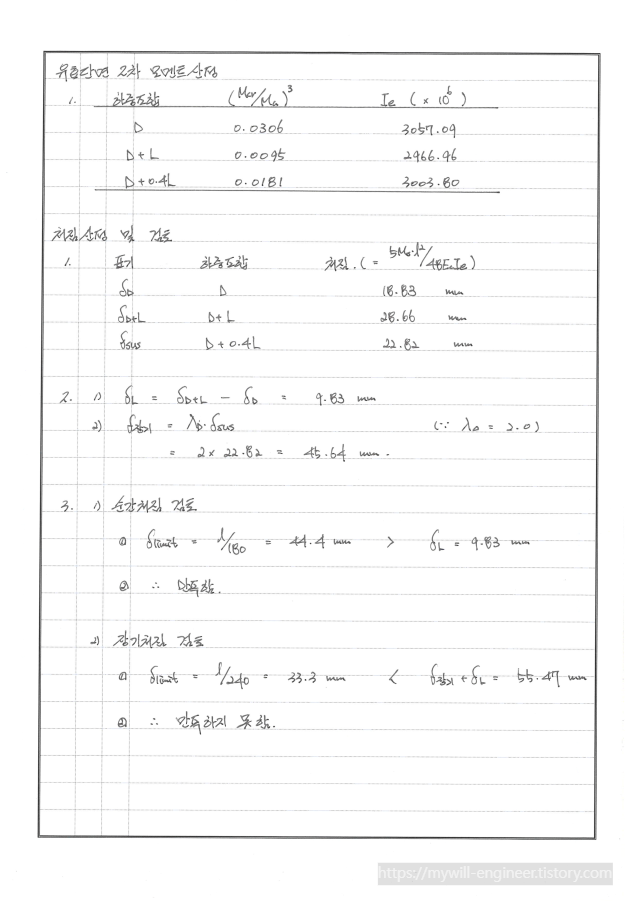 유효단면 2차 모멘트 산정
1. 하중조합 (Mcr/Ma)³ Ie (×10⁶)
D 0.0306 3057.09
D+L 0.0095 2966.96
D+0.4L 0.0181 3003.80
처짐 산정 및 검토
1. 표기 하중조합 처짐.(= 5Ma·l²/48EcIe)
δD D 18.83 mm
δD+L D+L 28.66 mm
δsus D+0.4L 22.82 mm
2. 1) δL = δD+L - δD = 9.83 mm
2) δ장기 = λΔ·δsus (∵ λΔ = 2.0)
= 2 × 22.82 = 45.64 mm.
3. 1) 순간처짐 검토
① δlimit = l/180 = 44.4 mm > δL = 9.83 mm
② ∴ 만족함.
2) 장기처짐 검토
① δlimit = l/240 = 33.3 mm < δ장기 + δL = 55.47 mm
② ∴ 만족하지 못함.
https://mywill-engineer.tistory.com